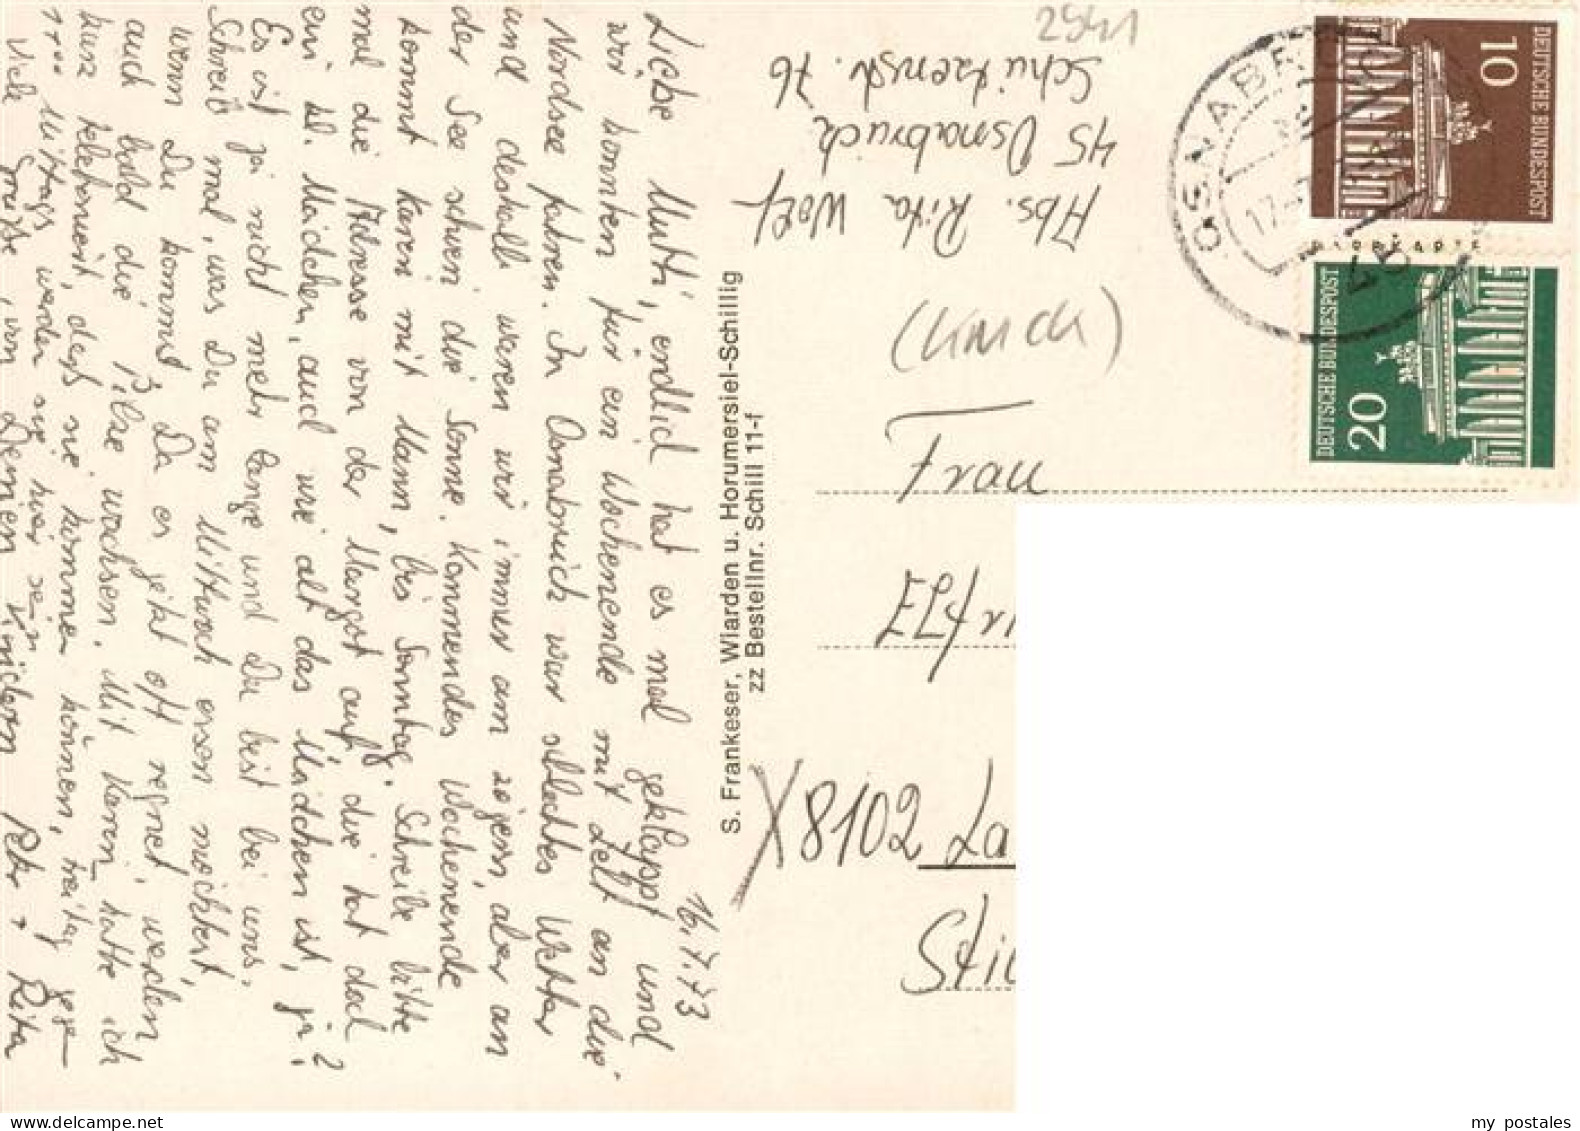 16.7.73
Liebe Mutti, endlich hat es mal geklappt und
wir konnten für ein Wochenende mit Zelt an die
Nordsee fahren. In Osnabrück war schlechtes Wetter
und deshalb waren wir immer am zögern, aber an
der See schien die Sonne. Kommendes Wochenende
kommt Karen mit Mann, bis Sonntag. Schreibe bitte
mal die Adresse von der Margot auf, die hat doch
ein kl. Mädchen, auch wie alt das Mädchen ist, ja?
Es ist ja nicht mehr lange und Du bist bei uns.
Schreib mal, was Du am Mittwoch essen möchtest,
wenn Du kommst. Da es jetzt oft regnet, werden
auch bald die Pilze wachsen. Mit Karen hatte ich
kurz telefoniert, daß sie kommen können, freitag gegen
Mittags werden sie hier sein
Viele Grüße, von Deinen Kindern Peter + Rita
S. Frankeser, Wiarden u. Horumersiel-Schillig
zz Bestellnr. Schill 11-f
2941
Abs. Rita Wolf
45 Osnabrück
Schützenstr. 76
Frau
X8102 La
Sti
OSNABR
17.
45
DEUTSCHE BUNDESPOST
10
DEUTSCHE BUNDESPOST
20
my postales